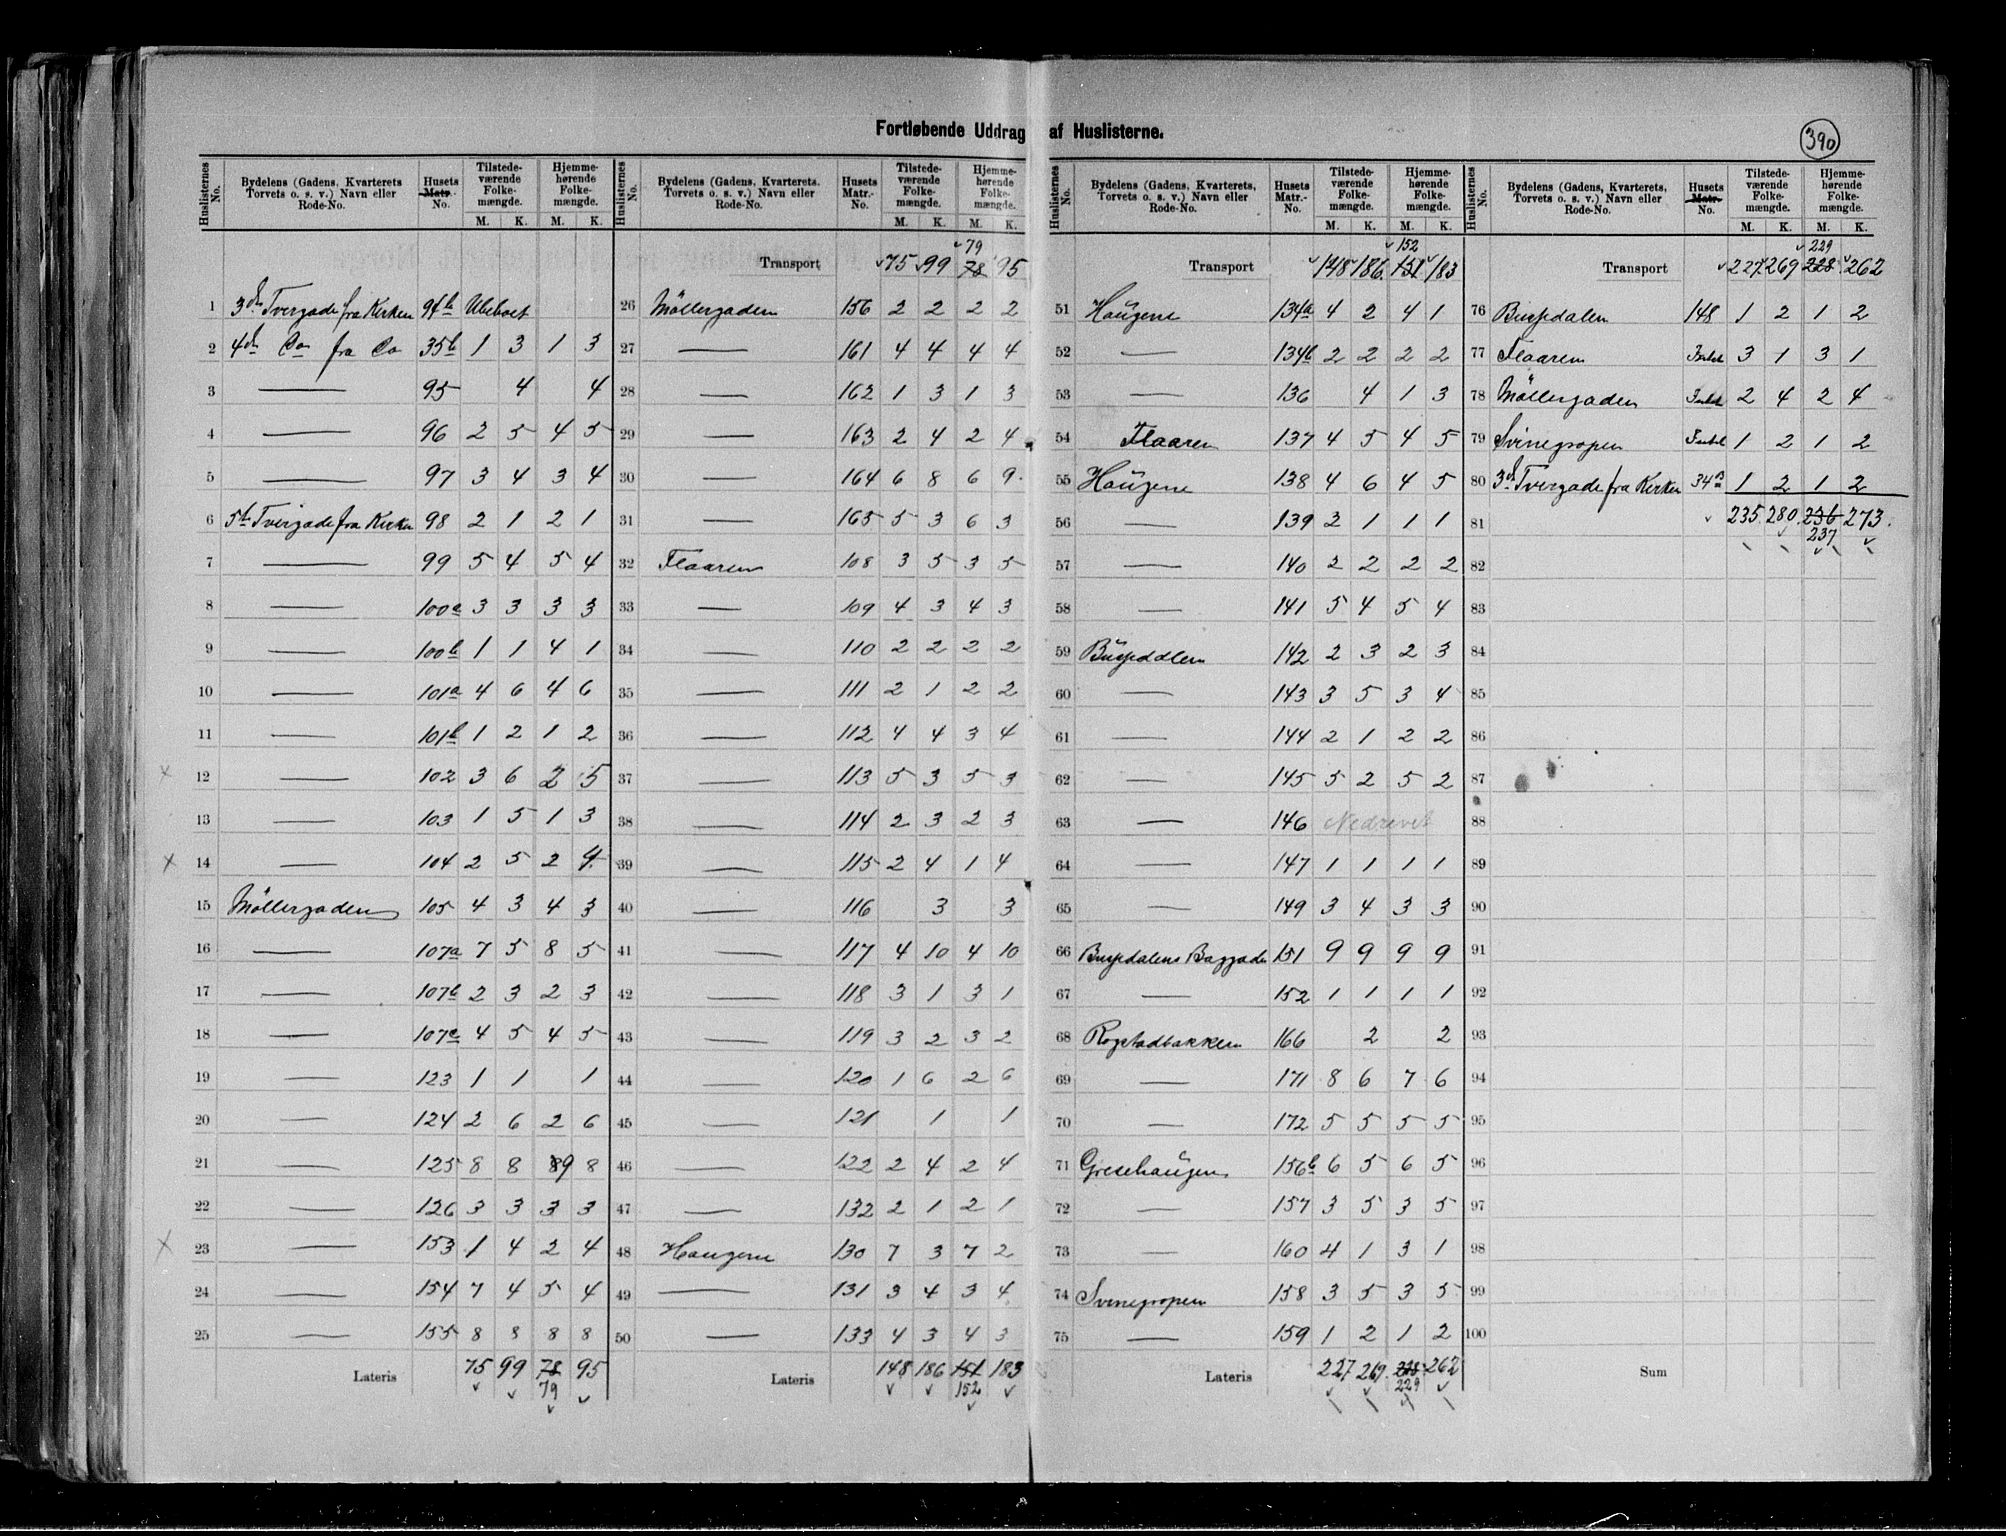 Fortløbende Uddrag af Huslisterne.
390
Huslisternes No. Bydelens (Gadens, Kvarterets Torvets o. s. v.) Navn eller Rode-No. Husets Matr.- No. Tilstede-værende Folke-mængde. M. K. Hjemme-hørende Folke-mængde. M. K.
1 3die Tvergade fra Kirken 94b Ubeboet
2 4de Do fra Do 35b 1 3 1 3
3 — 95 4 4
4 — 96 2 5 4 5
5 — 97 3 4 3 4
6 5te Tvergade fra Kirken 98 2 1 2 1
7 — 99 5 4 5 4
8 — 100a 3 3 3 3
9 — 100b 1 1 4 1
10 — 101a 4 6 4 6
11 — 101b 1 2 1 2
12 — 102 3 6 2 5
13 — 103 1 5 1 3
14 — 104 2 5 2 4
15 Möllergaden 105 4 3 4 3
16 — 107a 7 5 8 5
17 — 107b 2 3 2 3
18 — 107c 4 5 4 5
19 — 123 1 1 1
20 — 124 2 6 2 6
21 — 125 8 8 89 8
22 — 126 3 3 3 3
23 — 153 1 4 2 4
24 — 154 7 4 5 4
25 — 155 8 8 8 8
Lateris 75 99 78 95
79
Huslisternes No. Bydelens (Gadens, Kvarterets, Torvets o. s. v.) Navn eller Rode-No. Husets Matr.- No. Tilstede-værende Folke-mængde. M. K. Hjemme-hørende Folke-mængde. M. K.
79
Transport 75 99 78 95
26 Möllergaden 156 2 2 2 2
27 — 161 4 4 4 4
28 — 162 1 3 1 3
29 — 163 2 4 2 4
30 — 164 6 8 6 9
31 — 165 5 3 6 3
32 Flaaren 108 3 5 3 5
33 — 109 4 3 4 3
34 — 110 2 2 2 2
35 — 111 2 1 2 2
36 — 112 4 4 3 4
37 — 113 5 3 5 3
38 — 114 2 3 2 3
39 — 115 2 4 1 4
40 — 116 3 3
41 — 117 4 10 4 10
42 — 118 3 1 3 1
43 — 119 3 2 3 2
44 — 120 1 6 2 6
45 — 121 1 1
46 — 122 2 4 2 4
47 — 132 2 1 2 1
48 Haugene 130 7 3 7 2
49 — 131 3 4 3 4
50 — 133 4 3 4 3
Lateris 148 186 151 183
152
Huslisternes No. Bydelens (Gadens, Kvarterets, Torvets o. s. v.) Navn eller Rode-No. Husets Matr.- No. Tilstede-værende Folke-mængde. M. K. Hjemme-hørende Folke-mængde. M. K.
152
Transport 148 186 151 183
51 Haugene 134a 4 2 4 1
52 — 134b 2 2 2 2
53 — 136 4 1 3
54 Flaaren 137 4 5 4 5
55 Haugene 138 4 6 4 5
56 — 139 2 1 1 1
57 — 140 2 2 2 2
58 — 141 5 4 5 4
59 142 2 3 2 3
60 — 143 3 5 3 4
61 — 144 2 1 2 2
62 — 145 5 2 5 2
63 — 146 Nedrevet
64 — 147 1 1 1 1
65 — 149 3 4 3 3
66 151 9 9 9 9
67 — 152 1 1 1 1
68 Rogstadbakken 166 2 2
69 — 171 8 6 7 6
70 — 172 5 5 5 5
71 Gresehaugen 156b 6 5 6 5
72 — 157 3 5 3 5
73 — 160 4 1 3 1
74 Svinegropen 158 3 5 3 5
75 — 159 1 2 1 2
Lateris 227 269 228 262
229
Huslisternes No. Bydelens (Gadens, Kvarterets, Torvets o. s. v.) Navn eller Rode-No. Husets Matr.- No. Tilstede-værende Folke-mængde. M. K. Hjemme-hørende Folke-mængde. M. K.
229
Transport 227 269 228 262
76 148 1 2 1 2
77 Flaaren 3 1 3 1
78 Möllergaden 2 4 2 4
79 Svinegropen 1 2 1 2
80 3die Tvergade fra Kirken 34 1 2 1 2
81 235 280 236 273
237
82
83
84
85
86
87
88
89
90
91
92
93
94
95
96
97
98
99
100
Sum